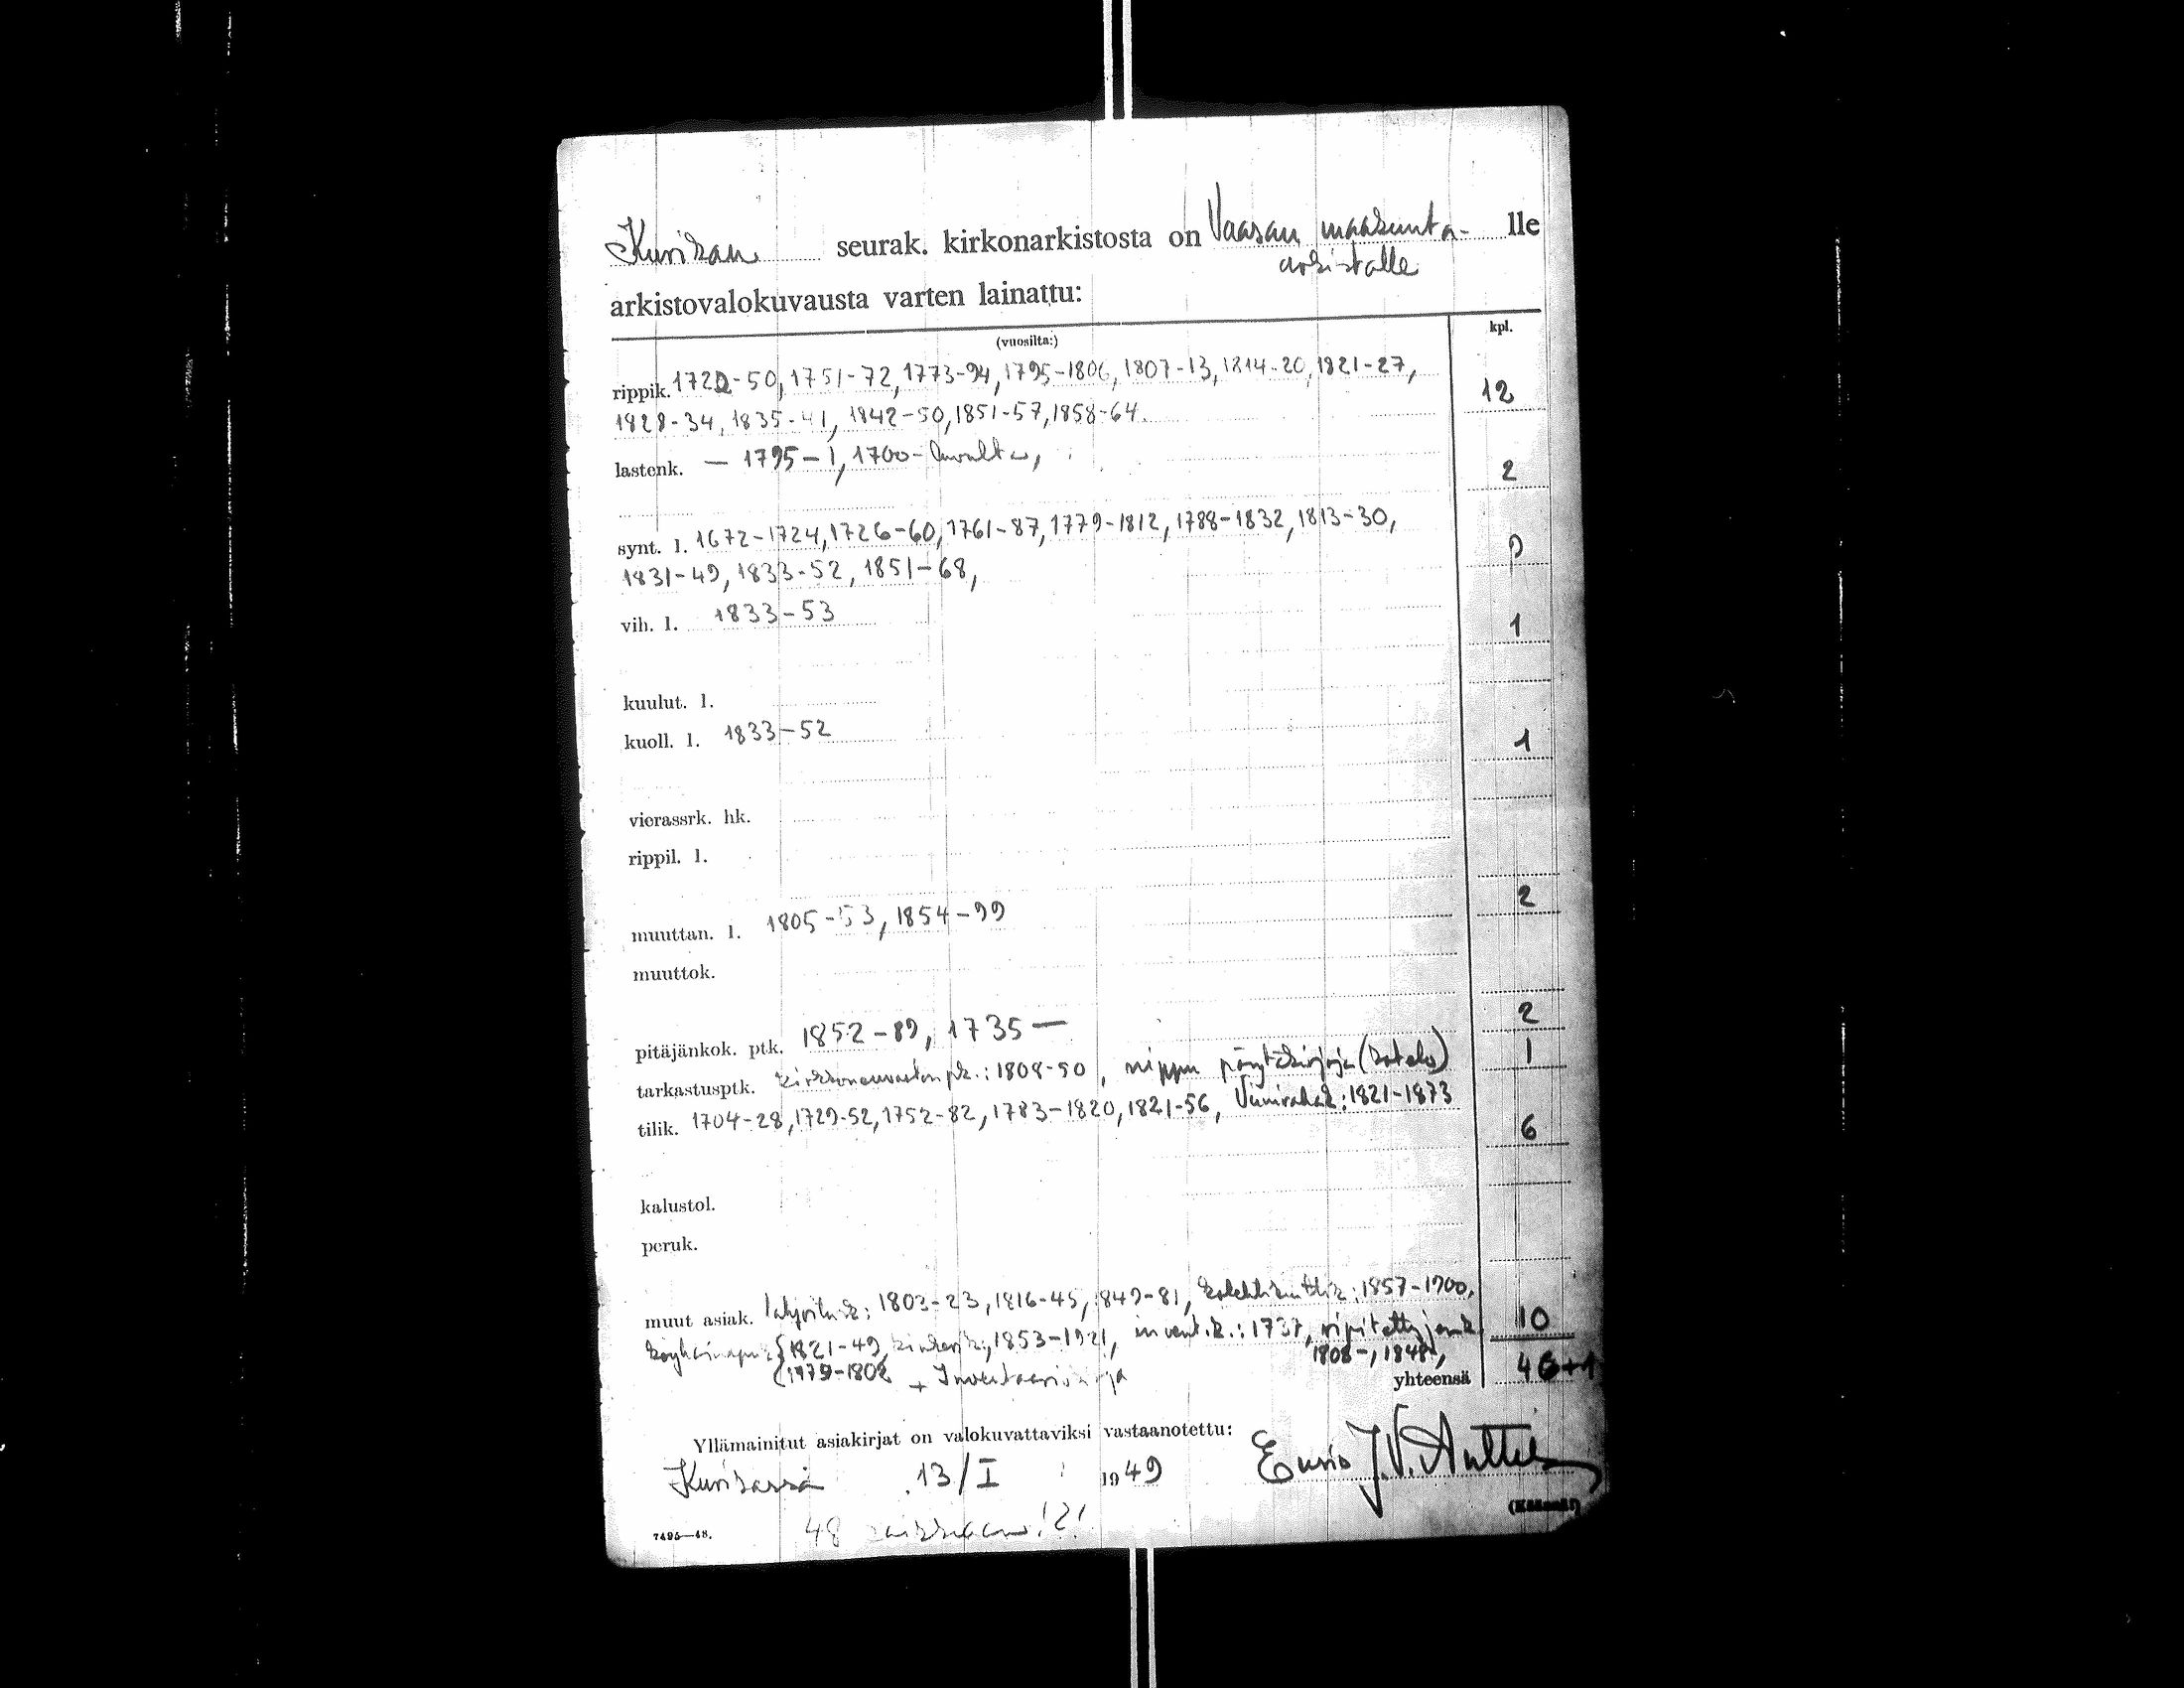 Kurikan seurak. kirkonarkistosta on Vaasan maakunta- lle
arkistolle
arkistovalokuvausta varten lainattu:
(vuosilta:) kpl.
rippik. 1722-50, 1751-72, 1773-94, 1795-1806, 1807-13, 1814-20, 1821-27,
1828-34, 1835-41, 1842-50, 1851-57, 1858-64. 12
lastenk. — 1795-1, 1700-luvulta, 2
synt. l. 1672-1724, 1726-60, 1761-87, 1779-1812, 1788-1832, 1813-30,
1831-49, 1833-52, 1851-68, 9
vih. l. 1833-53 1
kuulut. l.
kuoll. l. 1833-52 1
vierassrk. hk.
rippil. l.
muuttan. l. 1805-53, 1854-99 2
muuttok.
pitäjänkok. ptk. 1852-89, 1735— 2
tarkastusptk. kirkkoneuvoston pk.: 1808-50, nippu pöytäkirjoja (kotelo) 1
tilik. 1704-28, 1729-52, 1752-82, 1783-1820, 1821-56, Viinirahak: 1821-1873 6
kalustol.
peruk.
muut asiak. lahjoituk: 1803-23, 1816-45, 1849-81, kolehtikuittik: 1857-1900,
köyhäinapu: {1821-49, kinkerik:, 1853-1921, invent.k.: 1737, ripitettyj. 10
1808-, 1848-,
1779-1802 + Inventaariokirja yhteensä 46+1
Yllämainitut asiakirjat on valokuvattaviksi vastaanotettu:
Kurikassa 13/I 1949 J.V. Anttila
7495—48. 48 kaikkiaan!2!